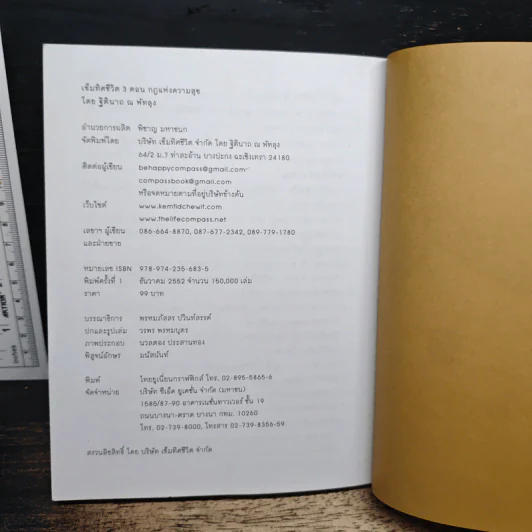 เข็มทิศชีวิต 3 ตอน กฎแห่งความสุข
โดย ฐิตินาถ ณ พัทลุง
อำนวยการผลิต พิชาญ มหาชนก
จัดพิมพ์โดย บริษัท เข็มทิศชีวิต จำกัด โดย ฐิตินาถ ณ พัทลุง
64/2 ม.7 ท่าสะอ้าน บางปะกง ฉะเชิงเทรา 24180
ติดต่อผู้เขียน behappycompass@gmail.com
compassbook@gmail.com
หรือจดหมายตามที่อยู่บริษัทข้างต้น
เว็บไซต์ www.kemtidchewit.com
www.thelifecompass.net
เลขาฯ ผู้เขียน 086-664-8870, 087-677-2342, 089-779-1780
และฝ่ายขาย
หมายเลข ISBN 978-974-235-683-5
พิมพ์ครั้งที่ 1 ธันวาคม 2552 จำนวน 150,000 เล่ม
ราคา 99 บาท
บรรณาธิการ พรหมภัสสร ปวินท์สรรค์
ปกและรูปเล่ม วรพร พรหมบุตร
ภาพประกอบ นวลตอง ประสานทอง
พิสูจน์อักษร มนัสนันท์
พิมพ์ ไทยยูเนี่ยนกราฟฟิกส์ โทร. 02-895-5865-6
จัดจำหน่าย บริษัท ซีเอ็ด ยูเคชั่น จำกัด (มหาชน)
1585/87-90 อาคารเนชั่นทาวเวอร์ ชั้น 19
ถนนบางนา-ตราด บางนา กทม. 10260
โทร. 02-739-8000, โทรสาร 02-739-8356-59
สงวนลิขสิทธิ์ โดย บริษัท เข็มทิศชีวิต จำกัด